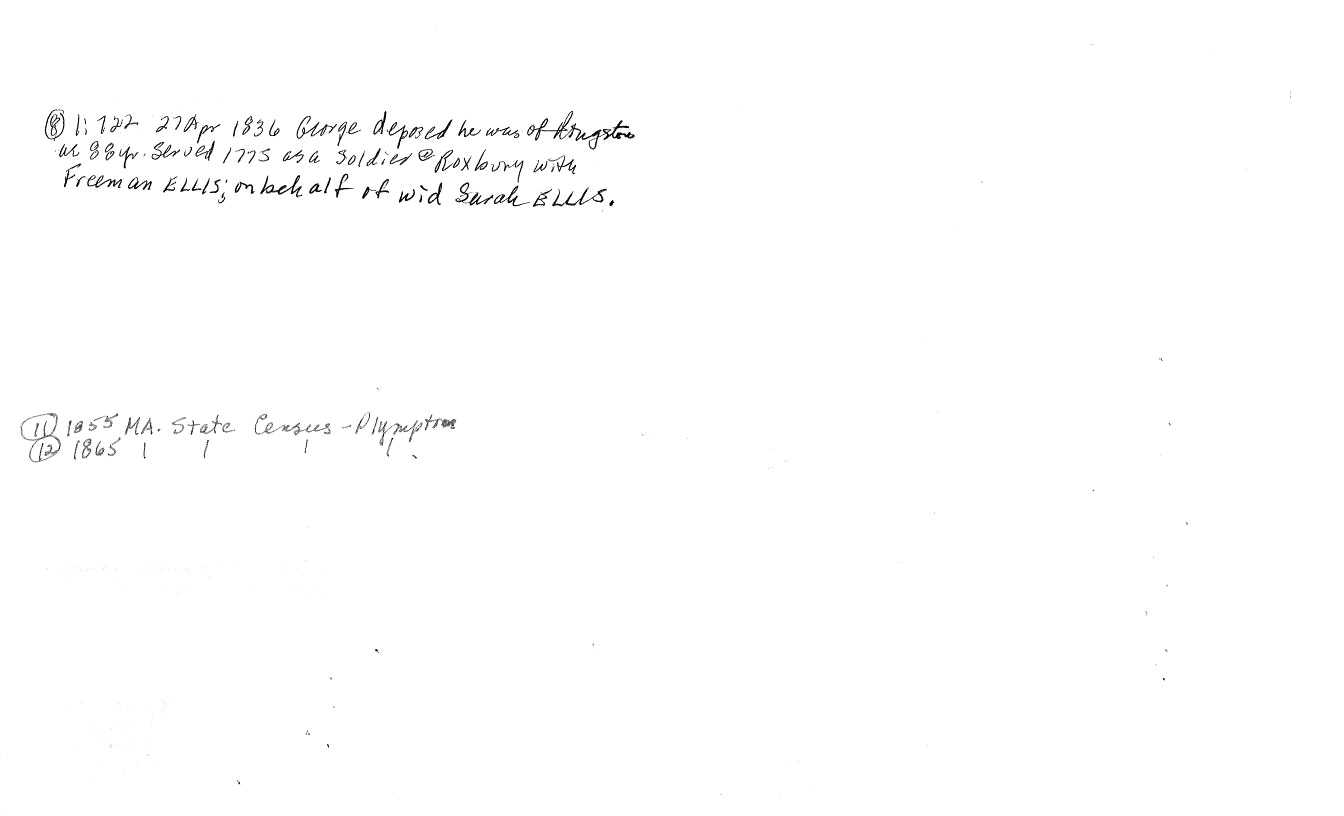 ⑧ 1:722 27 Apr 1836 George deposed he was of Kingston
ae 88 yr. Served 1775 as a Soldier @ Roxbury with
Freeman ELLIS; on behalf of wid Sarah ELLIS.
⑪ 1855 MA. State Census - Plympton
⑫ 1865 | | | |